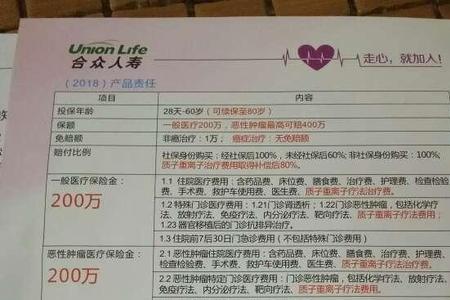 Union Life
合众人寿
走心，就加入!
(2018) 产品责任
项目 内容
投保年龄 28天-60岁 (可续保至80岁)
保额 一般医疗200万，恶性肿瘤最高可赔400万
免赔额 非癌治疗：1万； 癌症治疗：无免赔额
赔付比例 社保身份购买：经社保后100%，未经社保后60%; 非社保身份购买：100%;
质子重离子治疗费用取得补偿后80%。
一般医疗保险金:
200万
1.1 住院医疗费用：含药品费、床位费、膳食费、治疗费、护理费、检查检验
费、手术费、救护车使用费、医生费、质子重离子疗法治疗费。
1.2 特殊门诊医疗费用：1.21门诊肾透析；1.22门诊恶性肿瘤，包括化学疗
法、放射疗法、免疫疗法、内分泌疗法、靶向疗法、质子重离子疗法费用；
1.23器官移植后的门诊抗排异治疗。
1.3 住院前7后30日门急诊费用 (不包括特殊门诊费用)
恶性肿瘤医疗保险金:
200万
2.1 恶性肿瘤住院医疗费用：含药品费、床位费、膳食费、治疗费、护理费、
检查检验费、手术费、救护车使用费、医生费、质子重离子疗法治疗费。
2.2 恶性肿瘤特定门诊医疗费用：门诊恶性肿瘤，包括化学疗法、放射疗法、
免疫疗法、内分泌疗法、靶向疗法、质子重离子疗法费用